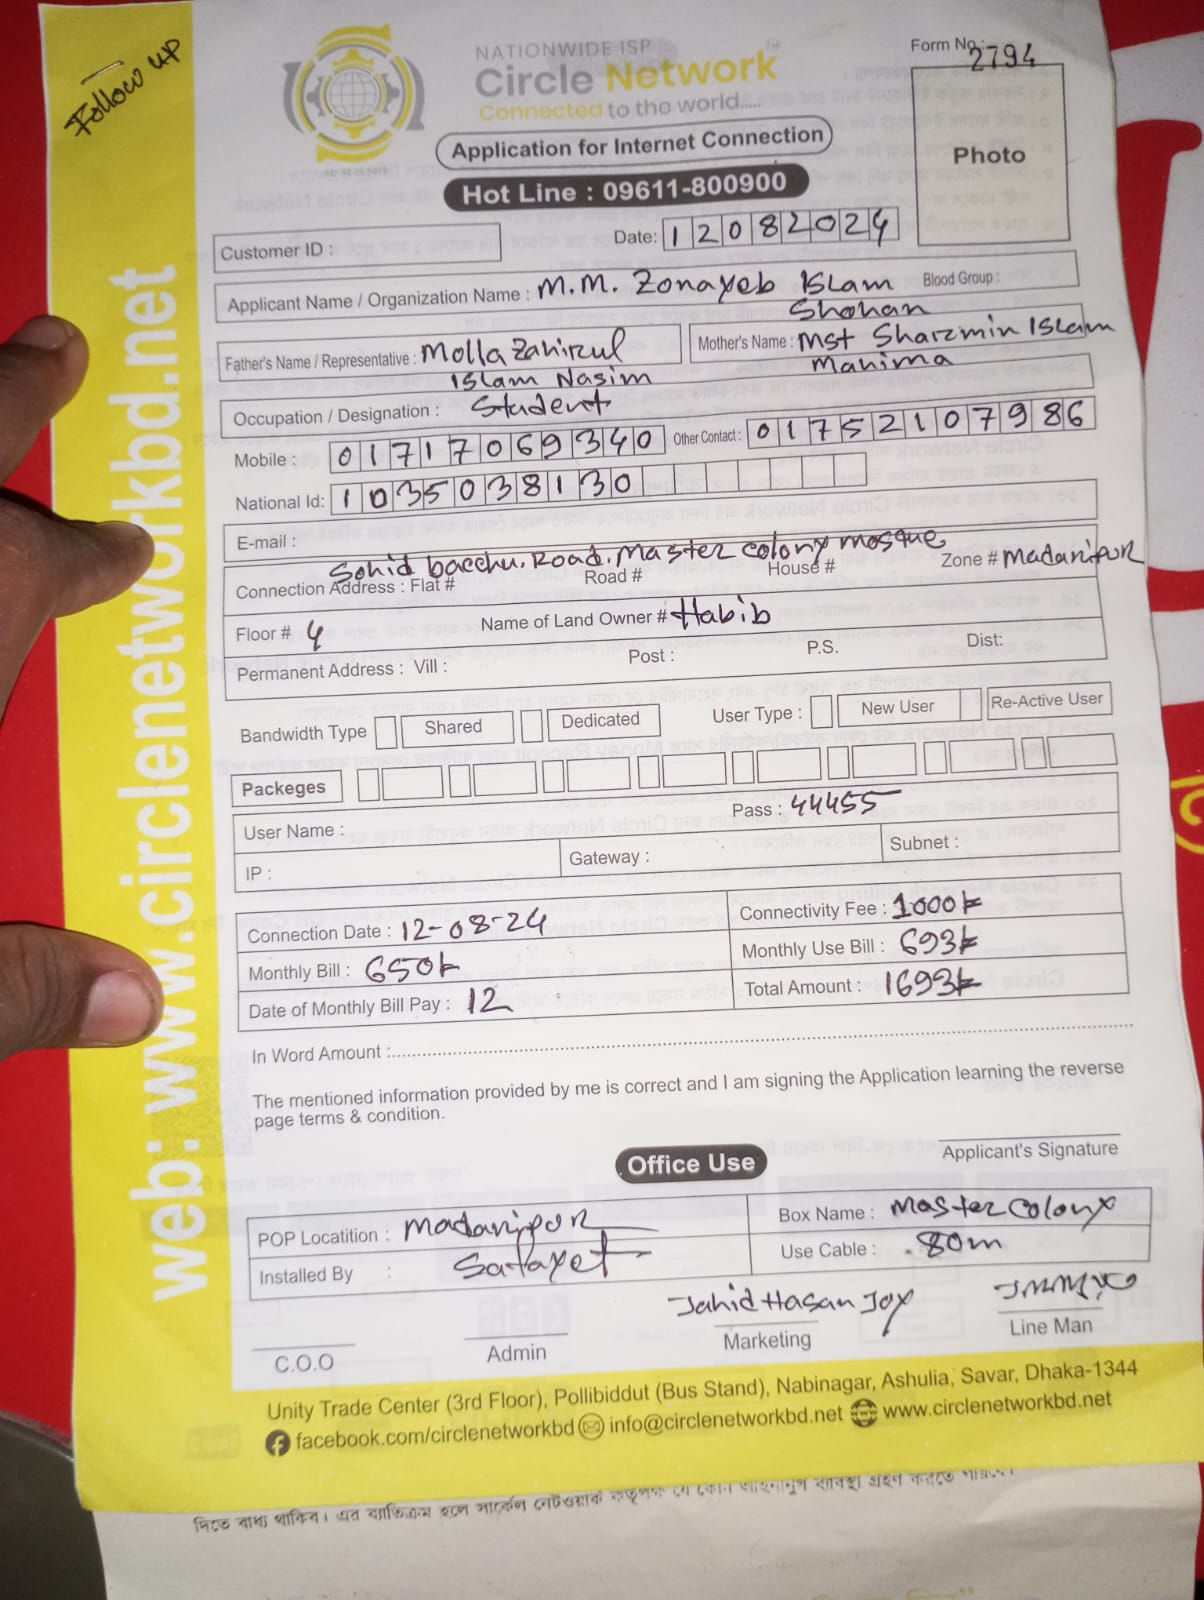 Follow up
NATIONWIDE ISP
Circle Network
Connected to the world.....
Form No.: 2794
Application for Internet Connection
Hot Line : 09611-800900
Photo
Customer ID :
Date: 12082024
Applicant Name / Organization Name : M.M. Zonayeb Islam Shohan Blood Group :
Father's Name / Representative : Molla Zahirul Islam Nasim
Mother's Name : Mst Sharzmin Islam Mahima
Occupation / Designation : Student
Mobile : 01717069340 Other Contact : 01752107986
National Id: 1035038130
E-mail :
Sohid bacchu. Road. Master colony mosque
Connection Address : Flat # Road # House # Zone # Madanipur
Floor # 4 Name of Land Owner # Habib
Permanent Address : Vill : Post : P.S. Dist:
Bandwidth Type Shared Dedicated User Type : New User Re-Active User
Packeges
User Name : Pass : 44455
IP : Gateway : Subnet :
Connection Date : 12-08-24 Connectivity Fee : 1000
Monthly Bill : 650 Monthly Use Bill : 693
Date of Monthly Bill Pay : 12 Total Amount : 1693
In Word Amount :
The mentioned information provided by me is correct and I am signing the Application learning the reverse
page terms & condition.
Applicant's Signature
Office Use
POP Locatition : Madanipur Box Name : Master Colony
Installed By : Safayet Use Cable : 80m
Jahid Hasan Joy
C.O.O Admin Marketing Line Man
Unity Trade Center (3rd Floor), Pollibiddut (Bus Stand), Nabinagar, Ashulia, Savar, Dhaka-1344
facebook.com/circlenetworkbd info@circlenetworkbd.net www.circlenetworkbd.net
web: www.circlenetworkbd.net
দিতে বাধ্য থাকিব। এর ব্যতিক্রম হলে সার্কেল নেটওয়ার্ক কতৃপক্ষ যে কোন আইনানুগ ব্যবস্থা গ্রহণ করতে